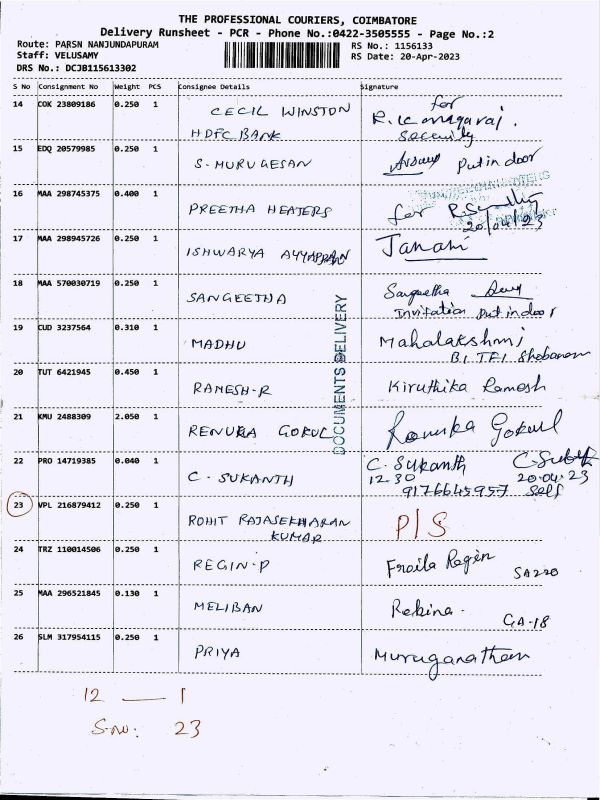 THE PROFESSIONAL COURIERS, COIMBATORE
Delivery Runsheet - PCR - Phone No.:0422-3505555 - Page No.:2
Route: PARSN NANJUNDAPURAM RS No.: 1156133
Staff: VELUSAMY RS Date: 20-Apr-2023
DRS No.: DCJB115613302
S No Consignment No Weight PCS Consignee Details Signature
14 COK 23809186 0.250 1 CECIL WINSTON for
HDFC BANK R. Kanagaraj.
Security
15 EDQ 20579985 0.250 1 S-MURUGESAN Put in door
16 MAA 298745375 0.400 1 PREETHA HEATERS for
20/04/23
17 MAA 298945726 0.250 1 ISHWARYA AYYAPPAN Janani
18 MAA 570030719 0.250 1 SANGEETHA Sangeetha
Invitation Put in door
19 CUD 3237564 0.310 1 MADHU Mahalakshmi
20 TUT 6421945 0.450 1 RAMESH-R Kiruthika Ramesh
21 KMU 2488309 2.050 1 RENUKA GOKUL Renuka Gokul
22 PRO 14719385 0.040 1 C. SUKANTH C. Sukanth
12.30 20.04.23
9176645957 Self
23 VPL 216879412 0.250 1 ROHIT RAJASEKHARAN P/S
KUMAR
24 TRZ 110014506 0.250 1 REGIN-P Fraila Regin
SA220
25 MAA 296521845 0.130 1 MELIBAN Rekina.
GA-18
26 SLM 317954115 0.250 1 PRIYA Muruganatham
DOCUMENTS DELIVERY
12 — 1
S.no: 23